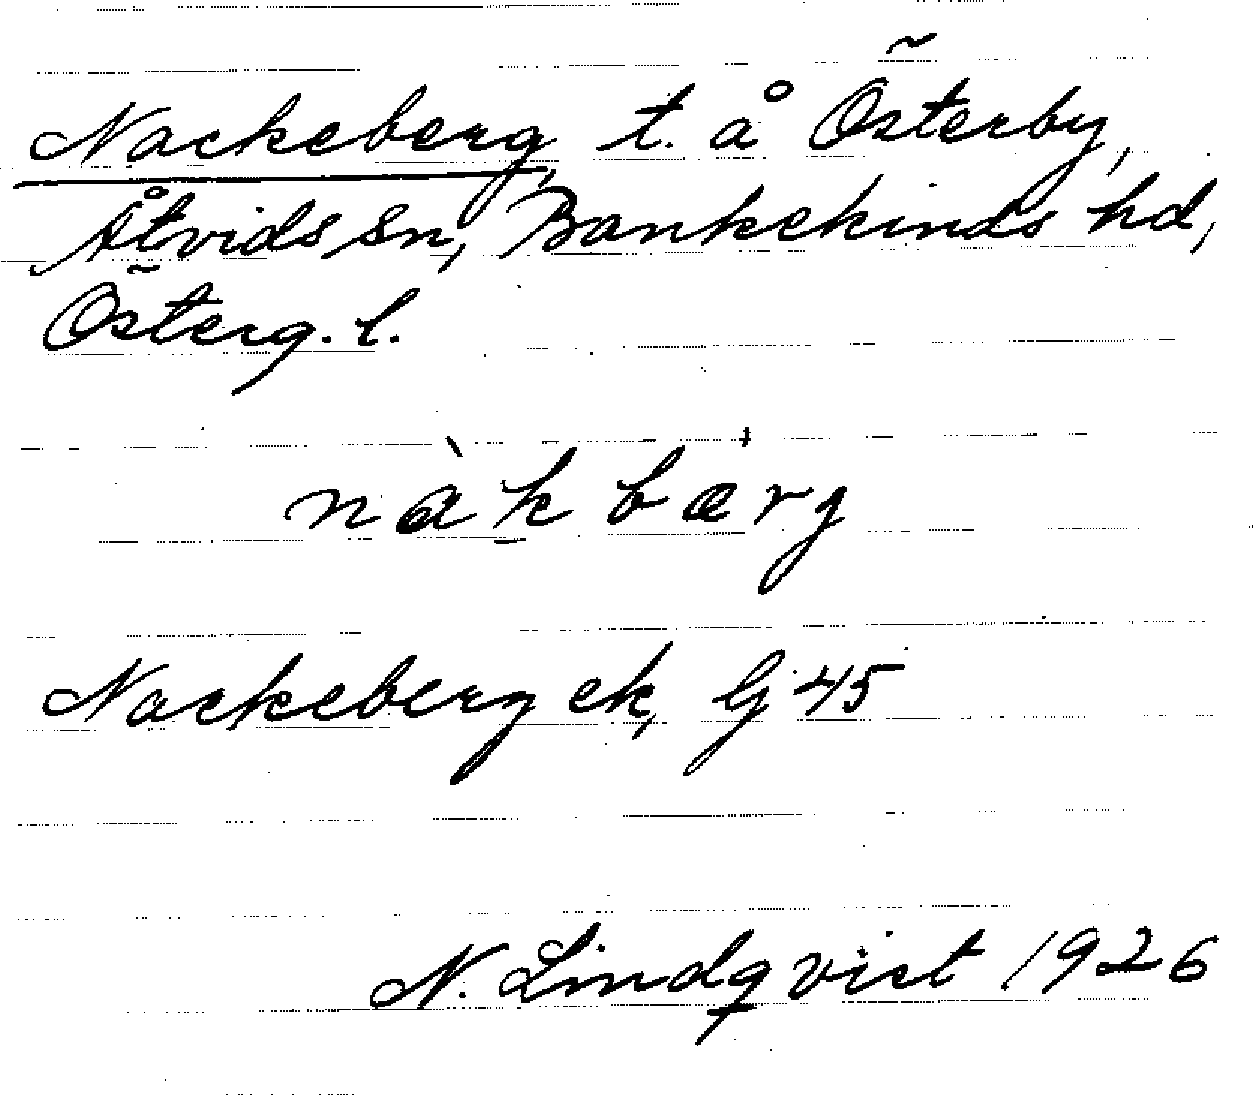 Nackeberg, t. å Österby,
Åtvids sn, Bankekinds hd,
Österg. l.
nàkbærg
Nackeberg ek, G 45
N. Lindqvist 1926